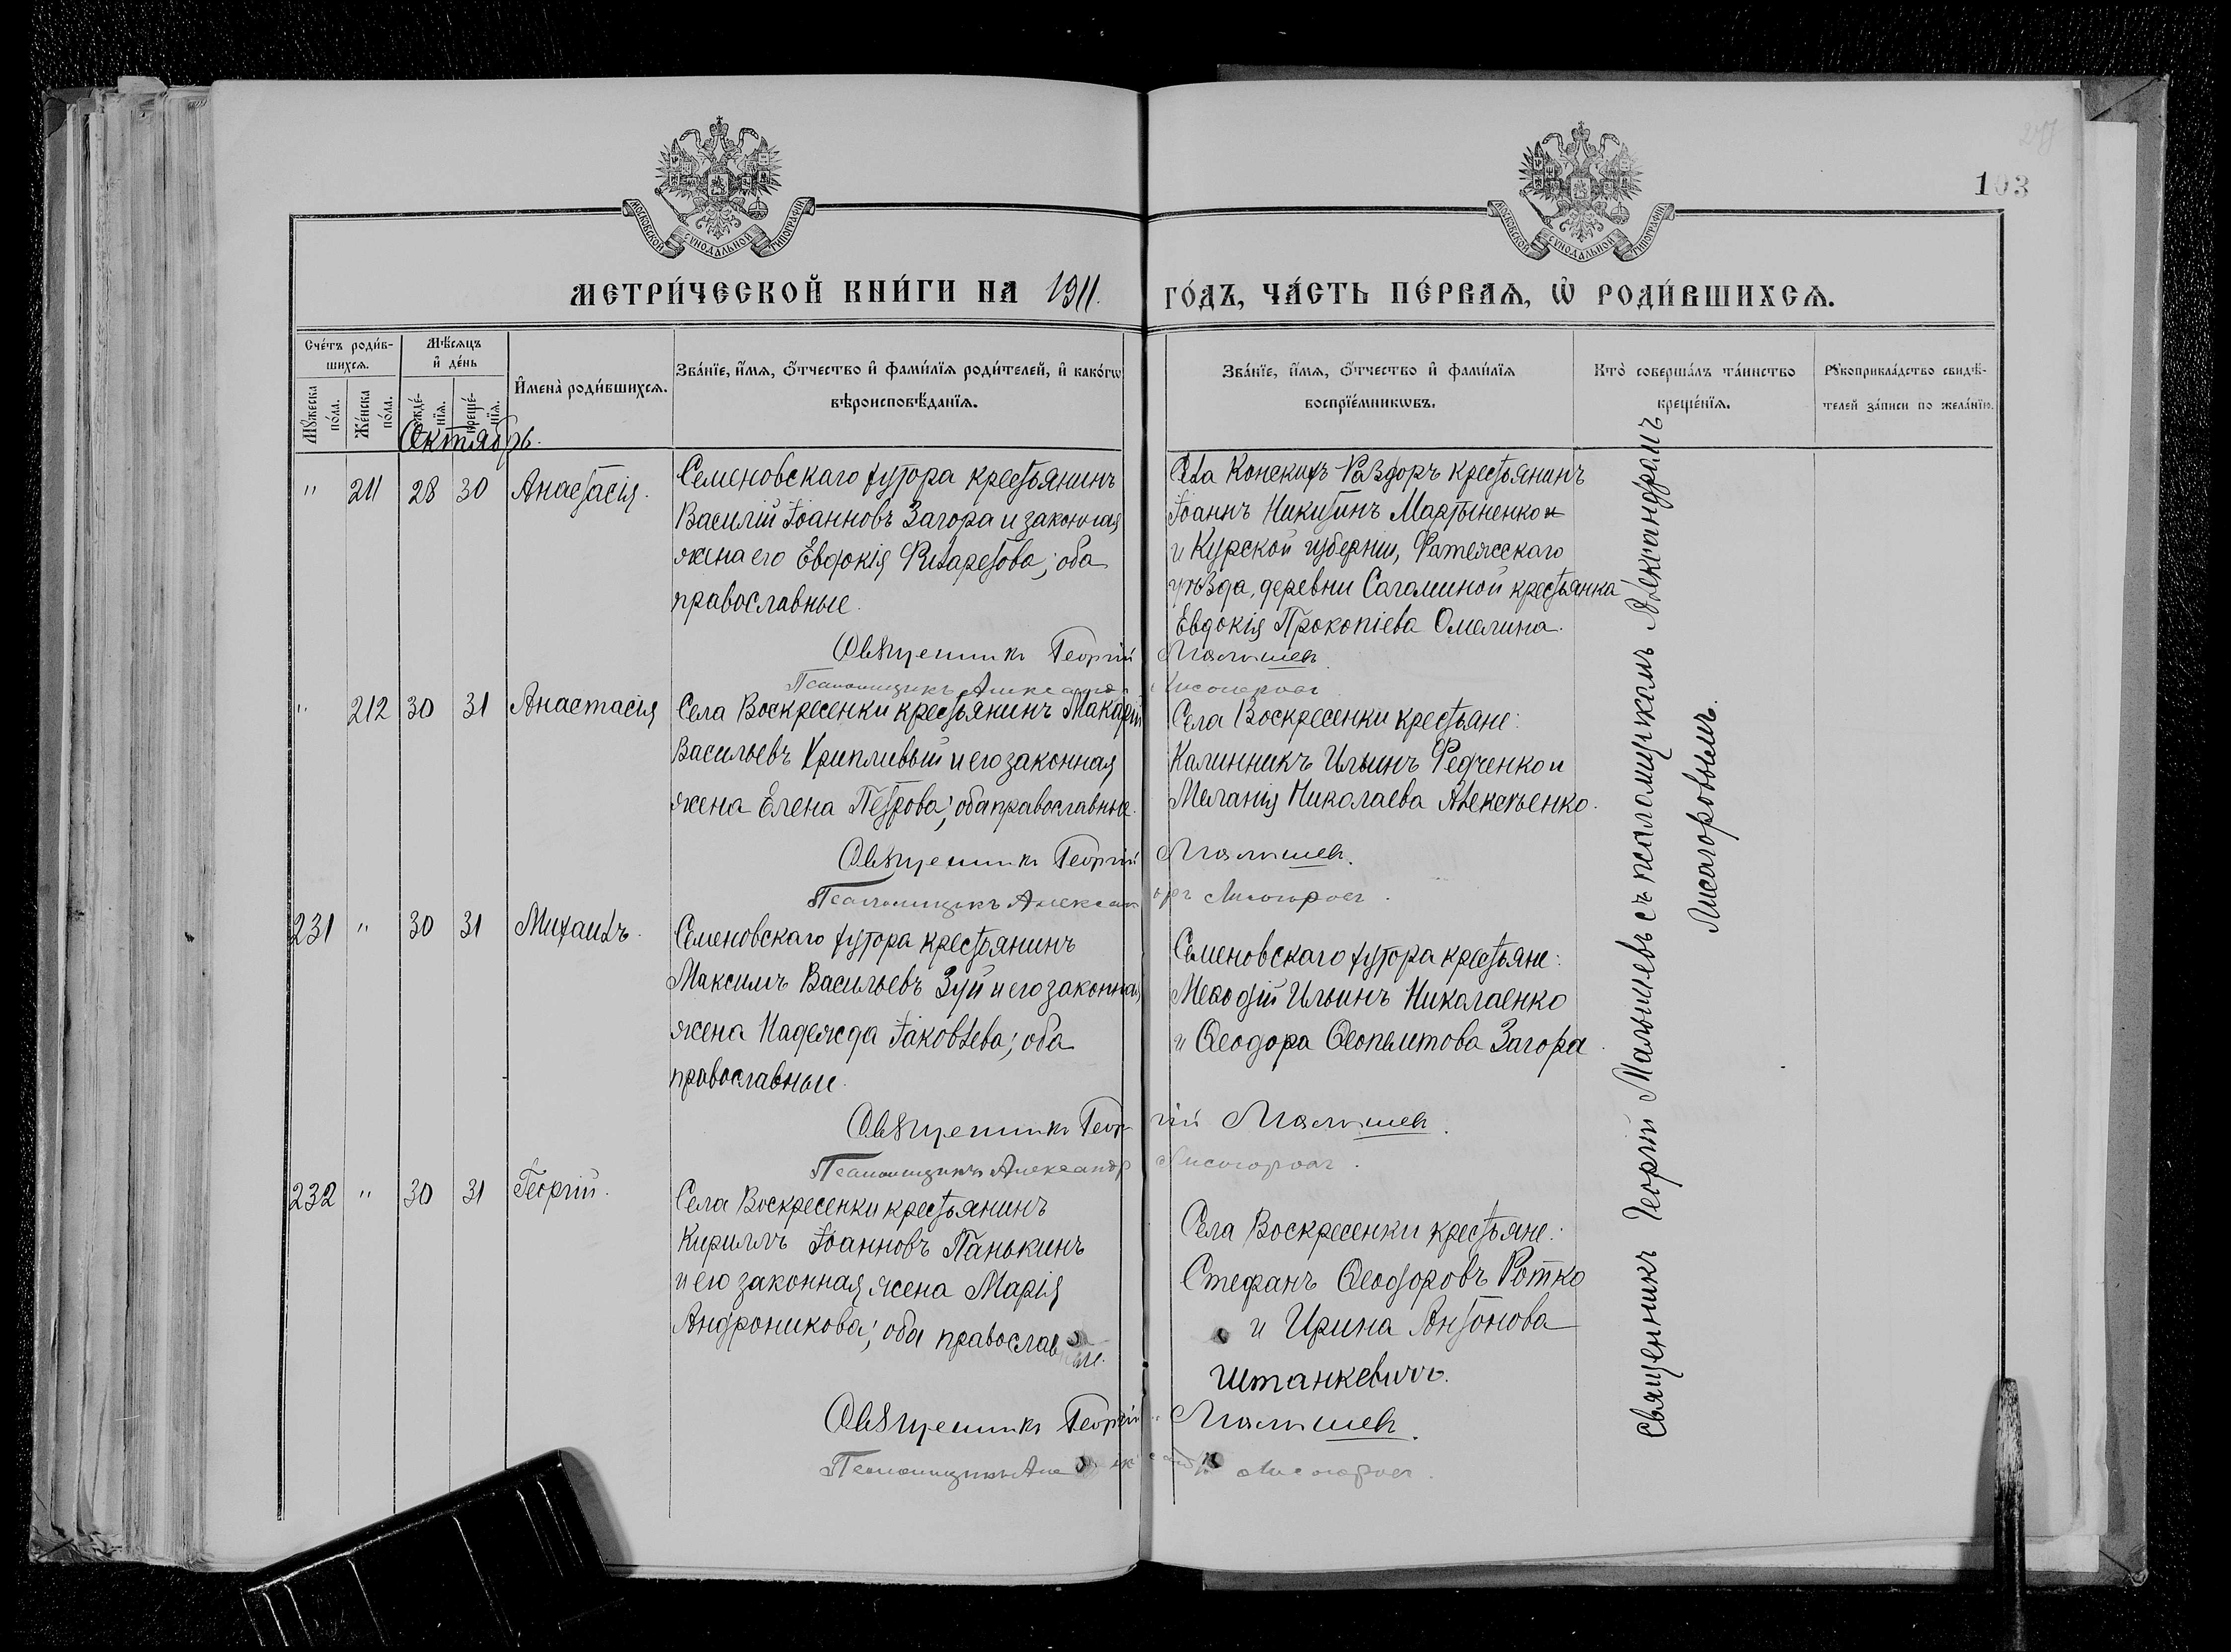 103
МОСКОВСКОЙ СѴНОДАЛЬНОЙ ТИПОГРАФІИ
МОСКОВСКОЙ СѴНОДАЛЬНОЙ ТИПОГРАФІИ
МЕТРИ́ЧЕСКОЙ КНИ́ГИ НА 1911. ГО́ДЪ, ЧА́СТЬ ПЕ́РВАѦ, Ѡ҆ РОДИ́ВШИХСѦ.
Сче́тъ роди́в-
шихсѧ.
Мꙋ́жеска по́ла.
Же́нска по́ла.
Мѣ́сѧцъ и҆ де́нь
рожде́-нїѧ.
креще́-нїѧ.
И҆мена̀ роди́вшихсѧ.
Зва́нїе, и҆́мѧ, ѻ҆́тчество и҆ фами́лїѧ роди́телей, и҆ како́гѡ
вѣроисповѣ́данїѧ.
Зва́нїе, и҆́мѧ, ѻ҆́тчество и҆ фами́лїѧ
воспрїе́мникѡвъ.
Кто̀ соверша́лъ та́инство
креще́нїѧ.
Рꙋкоприкла́дство свидѣ́-
телей за́писи по жела́нїю.
Октябрь.
" 211 28 30 Анастасія.
Семеновскаго хутора крестьянинъ
Василій Іоанновъ Загора и законная
жена его Евдокія Филаретова; оба
православные.
Села Конскихъ-Раздоръ крестьянинъ
Іоаннъ Никитинъ Мартыненко
и Курской губерніи, Фатежскаго
уѣзда, деревни Сагаминой крестьянка
Евдокія Прокопіева Омелина.
Священникъ Георгій Малышев
Псаломщикъ Александр Лисогоров
" 212 30 31 Анастасія
Села Воскресенки крестьянинъ Макарій
Васильевъ Крипливый и его законная
жена Елена Петрова; оба православные.
Села Воскресенки крестьяне:
Калинникъ Ильинъ Федченко и
Меланія Николаева Алексѣенко.
Священникъ Георгій Малышев.
Псаломщикъ Александръ Лисогоров.
231 " 30 31 Михаилъ.
Семеновскаго хутора крестьянинъ
Максимъ Васильевъ Зуй и его законная
жена Надежда Іаковлева; оба
православные.
Семеновскаго хутора крестьяне:
Меѳодій Ильинъ Николаенко
и Ѳеодора Ѳеопемтова Загора.
Священникъ Георгій Малышев.
Псаломщикъ Александр Лисогоров.
232 " 30 31 Георгій.
Села Воскресенки крестьянинъ
Кириллъ Іоанновъ Панькинъ
и его законная жена Марія
Андроникова; оба православные.
Села Воскресенки крестьяне:
Стефанъ Ѳеодоровъ Ротко
и Ирина Антонова
Штанкевичъ.
Священникъ Георгій Малышев.
Псаломщикъ Александр Лисогоров.
Священникъ Георгій Малышевъ съ псаломщикомъ Александромъ
Лисогоровымъ.